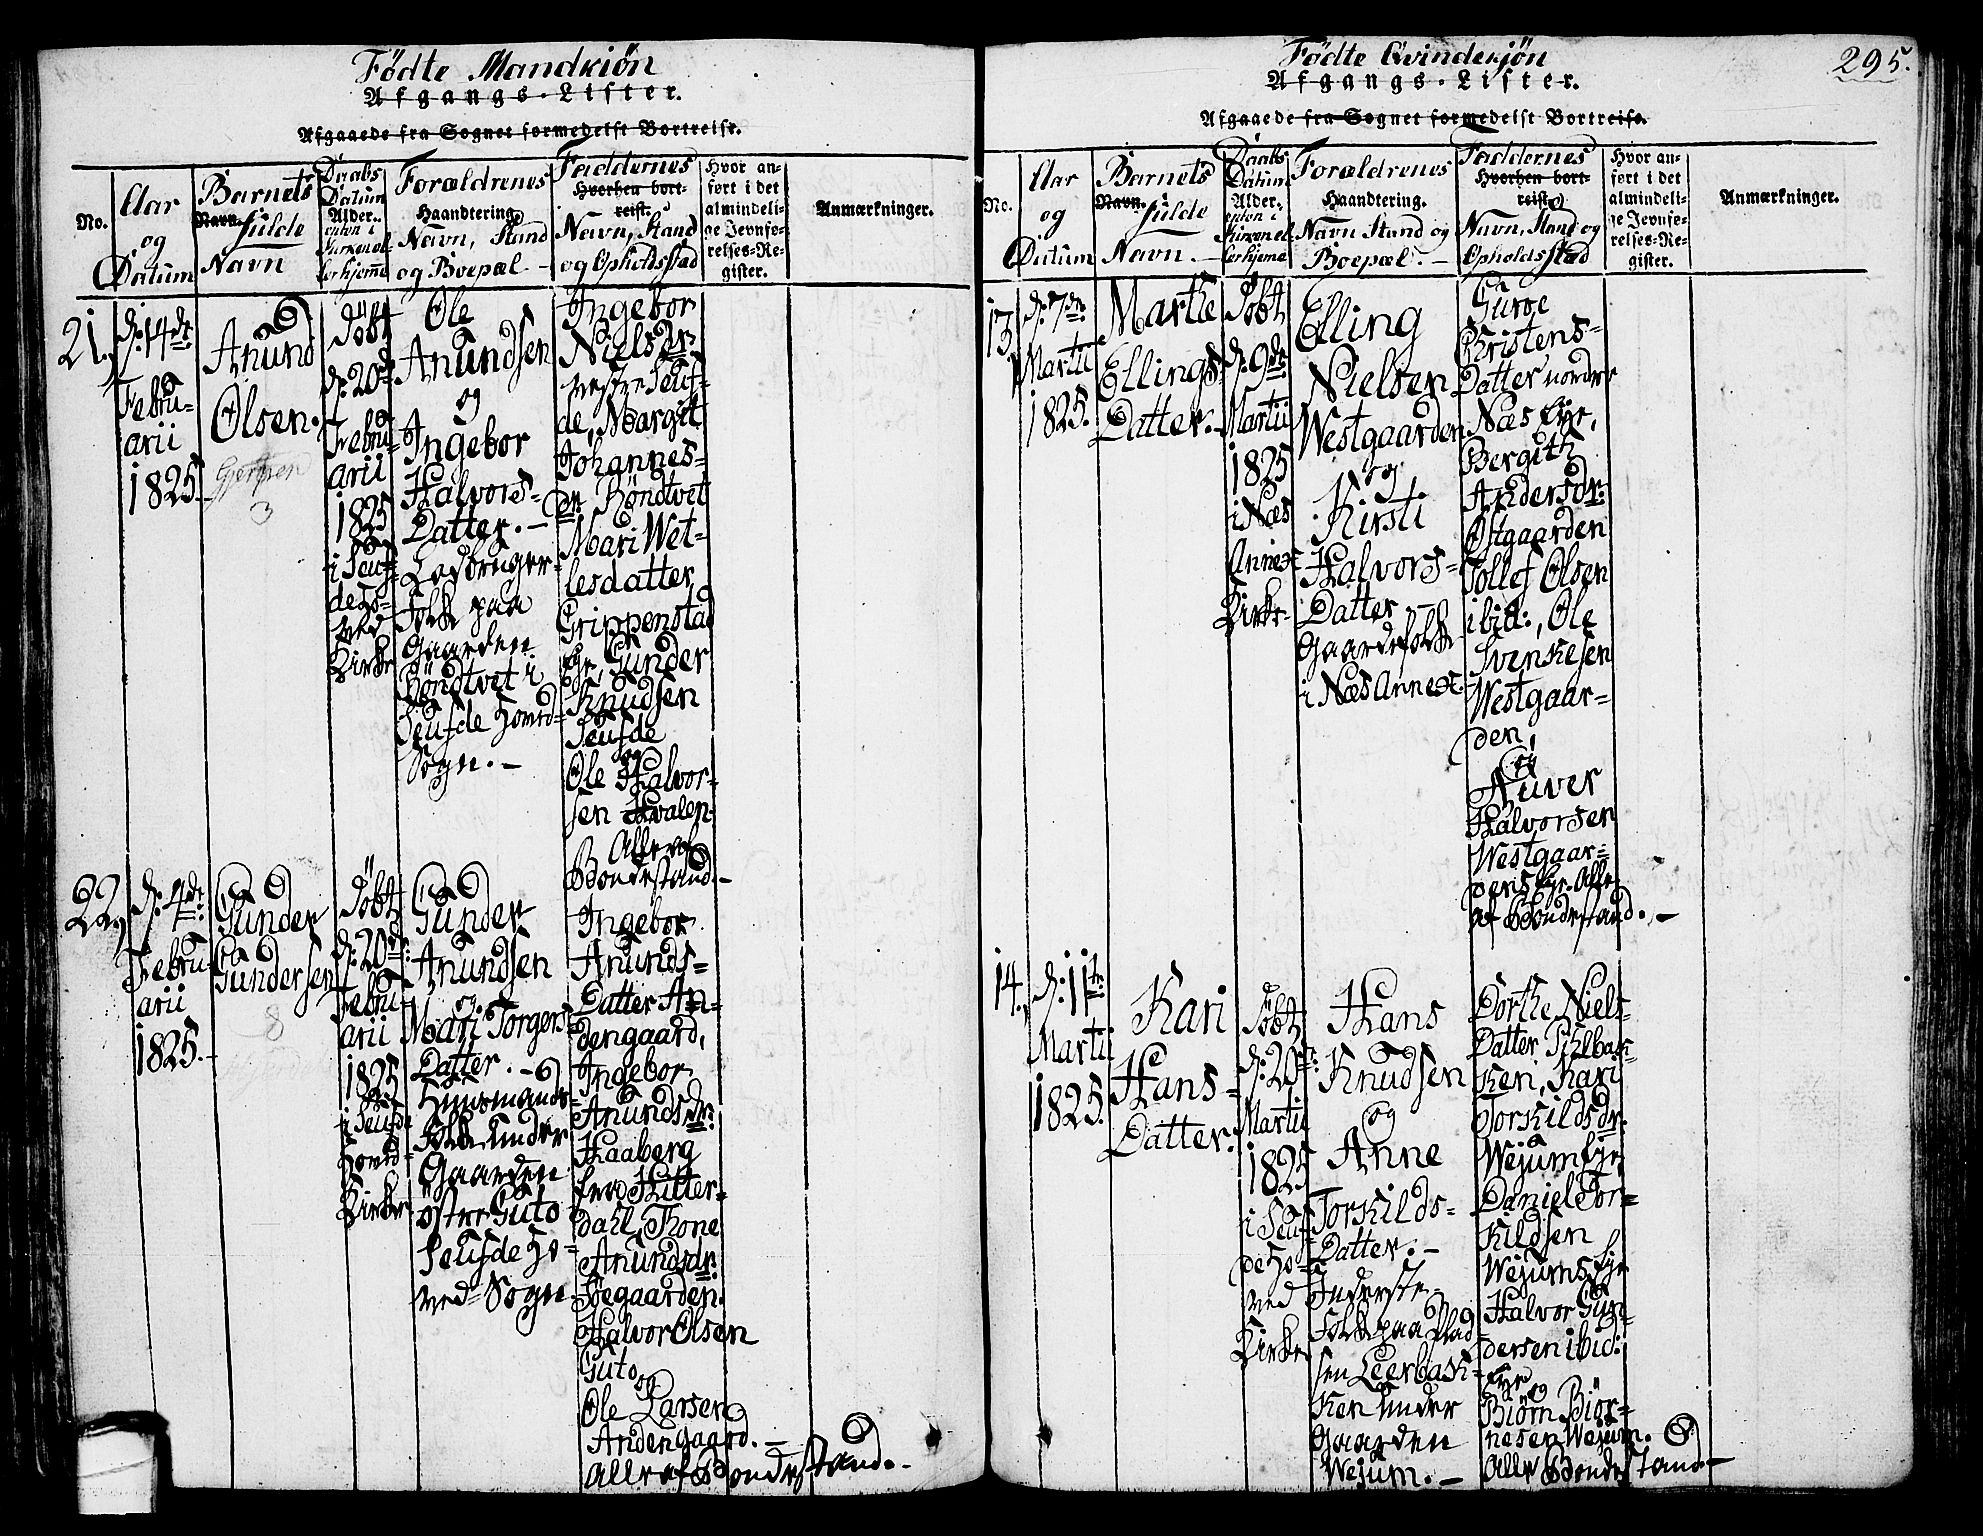 Födte Mandkiön
Afgangs-Lister.
Afgaaede fra Sognet formedelst Bortreise.
No.
Aar
og
Datum
Barnets
Navn.
fulde
Navn
Daabs
Datum
Alder.
Forældrenes
Haandtering.
Navn, Stand
og Boepæl. –
Faddernes
Hvorhen bort-
reist.
Navn, Stand
og Opholdsstad
Hvor an-
ført i det
almindeli-
ge Jevnfø-
relses-Re-
gister.
Anmærkninger.
21.
d: 14de
Febru-
arii
1825.
Anund
Olsen.
Gjerpen
3
Döbt
d: 20de
Febru
arii
1825
i Seuf-
de Ho-
ved
Kirke
Ole
Anundsen
og
Ingebor
Halvors-
Datter. –
Folk paa
Gaarden
Röndtvet i
Seufde Hoved-
Sogn. –
Ingebor
Nielsdr.
vestre Seuf-
de, Margit
Johannes-
dr. Röndtvet
Mari Wet-
lesdatter
Grippenstad
Eje, Gunder
Knudsen
Seufde
og
Ole Halvor-
sen Hvalen.
Alle af
Bondestand. –
22,
d: 4de
Febru-
arii
1825. –
Gunder
Gundersen
8
Döbt
d: 20de
Febru-
arii
1825
i Seufde
Hoved-
Kirke
Gunder
Anundsen
og
Mari Torgers-
Datter. –
Huusmands-
Folk under
Gaarden
östre Guto
Seufde Ho-
ved-Sogn.
Ingebor
Anunds-
Datter An-
dengaard,
Ingebor
Anundsdr.
Haaberg
fra Hitter-
dahl, Thone
Anundsdr.
Föegaarden.
Halvor Olsen
Guto
og
Ole Larsen
Andengaard. –
Alle af Bondestand. –
295.
Födte Qvindekjön
Afgangs-Lister.
Afgaaede fra Sognet formedelst Bortreise.
No.
Aar
og
Datum
Barnets
Navn.
fulde
Navn. –
Daabs
Datum
Alder.
Forældrenes
Haandtering.
Navn Stand og
Boepæl. –
Faddernes
Hvorhen bort-
reist
Navn, Stand og
Opholdsstad
Hvor an-
ført i det
almindeli-
ge Jevnfø-
relses-Re-
gister.
Anmærkninger.
13,
d: 7de
Martii
1825.
Marthe
Ellings-
Datter. –
Döbt
d: 9de
Martii
1825
i Næs
Annex
Kirke-
Elling
Nielsen
Westgaarden
og
Kirsti
Halvors-
Datter –
Gaardefolk
i Næs Annex.
Guroe
Christens-
Datter nordre
Næs Eje,
Bergith
Andersdr.
Östgaarden
Tollef Olsen
ibid:, Ole
Svenkesen
Westgaar-
den,
og
Auver
Halvorsen
Westgaar-
dens Eje. Alle
af Bondestand. –
14.
d: 11te
Martii
1825.
Kari
Hans-
Datter.
Döbt
d: 20de
Martii
1825
i Seuf-
de Ho-
ved
Kirke
Hans
Knudsen
og
Anne
Torkilds-
Datter. –
Inderste
Folk paa Plad-
sen Leerbak-
ken under
Gaarden
Wejum. –
Dorthe Niels-
Datter Pihlbak-
ken, Kari
Torkildsdr.
Wejum Eje
Daniel Tor-
kildsen
Wejums Eje
Halvor Gun-
dersen ibid:
Biörn Biör-
nesen Wejum.
Alle Bondestand. –